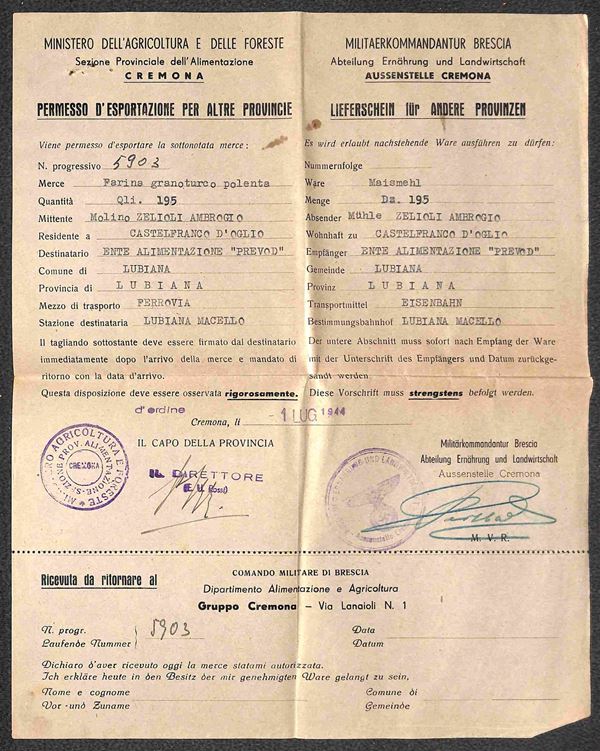 MINISTERO DELL'AGRICOLTURA E DELLE FORESTE
Sezione Provinciale dell'Alimentazione
CREMONA
PERMESSO D'ESPORTAZIONE PER ALTRE PROVINCIE
Viene permesso d'esportare la sottonotata merce:
N. progressivo 5903
Merce Farina granoturco polenta
Quantità Qli. 195
Mittente Molino ZELIOLI AMBROGIO
Residente a CASTELFRANCO D'OGLIO
Destinatario ENTE ALIMENTAZIONE "PREVOD"
Comune di LUBIANA
Provincia di LUBIANA
Mezzo di trasporto FERROVIA
Stazione destinataria LUBIANA MACELLO
Il tagliando sottostante deve essere firmato dal destinatario
immediatamente dopo l'arrivo della merce e mandato di
ritorno con la data d'arrivo.
Questa disposizione deve essere osservata rigorosamente.
MILITAERKOMMANDANTUR BRESCIA
Abteilung Ernährung und Landwirtschaft
AUSSENSTELLE CREMONA
LIEFERSCHEIN für ANDERE PROVINZEN
Es wird erlaubt nachstehende Ware ausführen zu dürfen:
Nummernfolge
Ware Maismehl
Menge Dz. 195
Absender Mühle ZELIOLI AMBROGIO
Wohnhaft zu CASTELFRANCO D'OGLIO
Empfänger ENTE ALIMENTAZIONE "PREVOD"
Gemeinde LUBIANA
Provinz LUBIANA
Transportmittel EISENBAHN
Bestimmungsbahnhof LUBIANA MACELLO
Der untere Abschnitt muss sofort nach Empfang der Ware
mit der Unterschrift des Empfängers und Datum zurückge-
sandt werden.
Diese Vorschrift muss strengstens befolgt werden.
d'ordine
Cremona, li - 1 LUG 1944
IL CAPO DELLA PROVINCIA
IL DIRETTORE
MINISTERO AGRICOLTURA E FORESTE
SEZIONE PROV. ALIMENTAZIONE
CREMONA
Militärkommandantur Brescia
Abteilung Ernährung und Landwirtschaft
Aussenstelle Cremona
M. V. R.
Aussenstelle
Ricevuta da ritornare al
COMANDO MILITARE DI BRESCIA
Dipartimento Alimentazione e Agricoltura
Gruppo Cremona – Via Lanaioli N. 1
N. progr.
Laufende Nummer 5903
Data
Datum
Dichiaro d'aver ricevuto oggi la merce statami autorizzata.
Ich erkläre heute in den Besitz der mir genehmigten Ware gelangt zu sein,
Nome e cognome
Vor -und Zuname
Comune di
Gemeinde